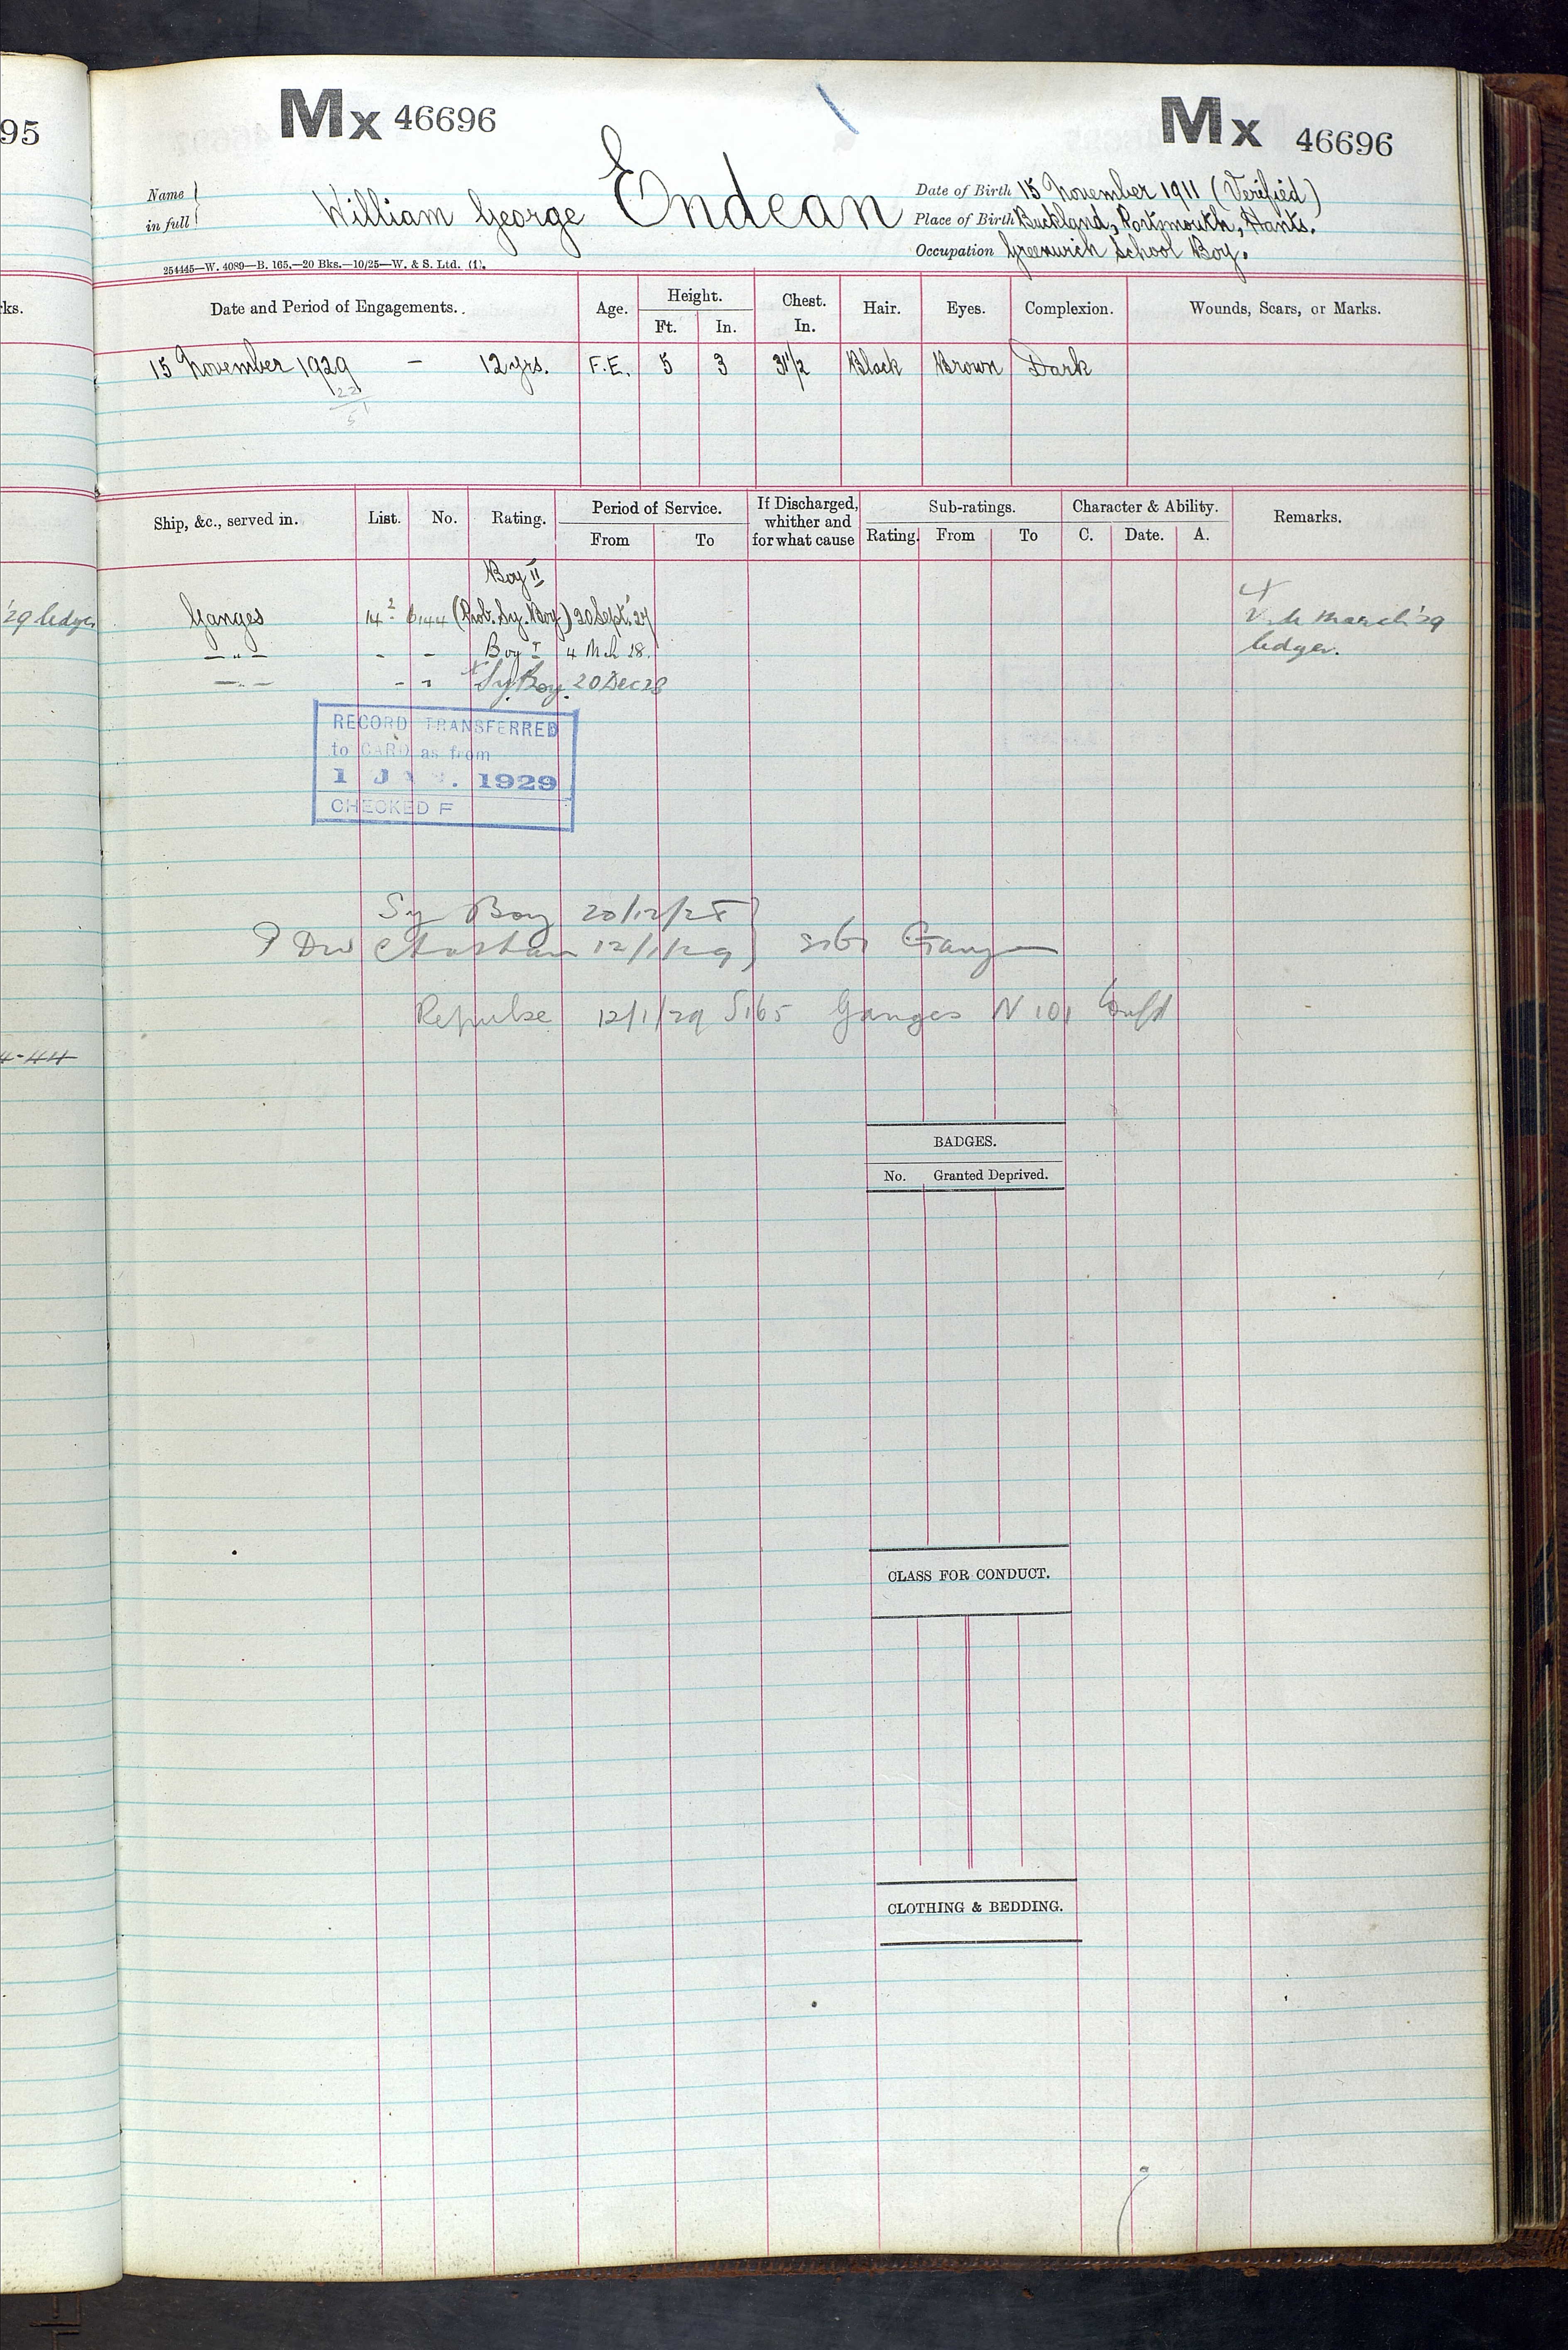 95
Mx 46696
Mx 46696
Name in full
William George Endean
Date of Birth 15 November 1911 (Verified)
Place of Birth Buckland, Portsmouth, Hants.
Occupation Greenwich School Boy.
254445—W. 4089—B. 165.—20 Bks.—10/25—W. & S. Ltd. (1).
ks.
Date and Period of Engagements. Age. Height. Ft. In. Chest. In. Hair. Eyes. Complexion. Wounds, Scars, or Marks.
15 November 1929 — 12 yrs. F.E. 5 3 31½ Black Brown Dark
22
51
Ship, &c., served in. List. No. Rating. Period of Service. From To If Discharged, whither and for what cause Sub-ratings. Rating. From To Character & Ability. C. Date. A. Remarks.
Boy II
'29 ledger
Ganges 14² 6144 (Prob. Sy. Boy) 20 Sept. '27
x
V. de March '29
—„— - - Boy I 4 Mch 28.
ledger.
—„— - „ x Sy. Boy. 20 Dec 28
RECORD TRANSFERRED
to CARD as from
1 JAN. 1929
CHECKED F
Sy Boy 20/12/28
Chatham 12/1/29 } Ganges
Repulse 12/1/29 S165 Ganges N 101
4-44
BADGES.
No. Granted Deprived.
CLASS FOR CONDUCT.
CLOTHING & BEDDING.